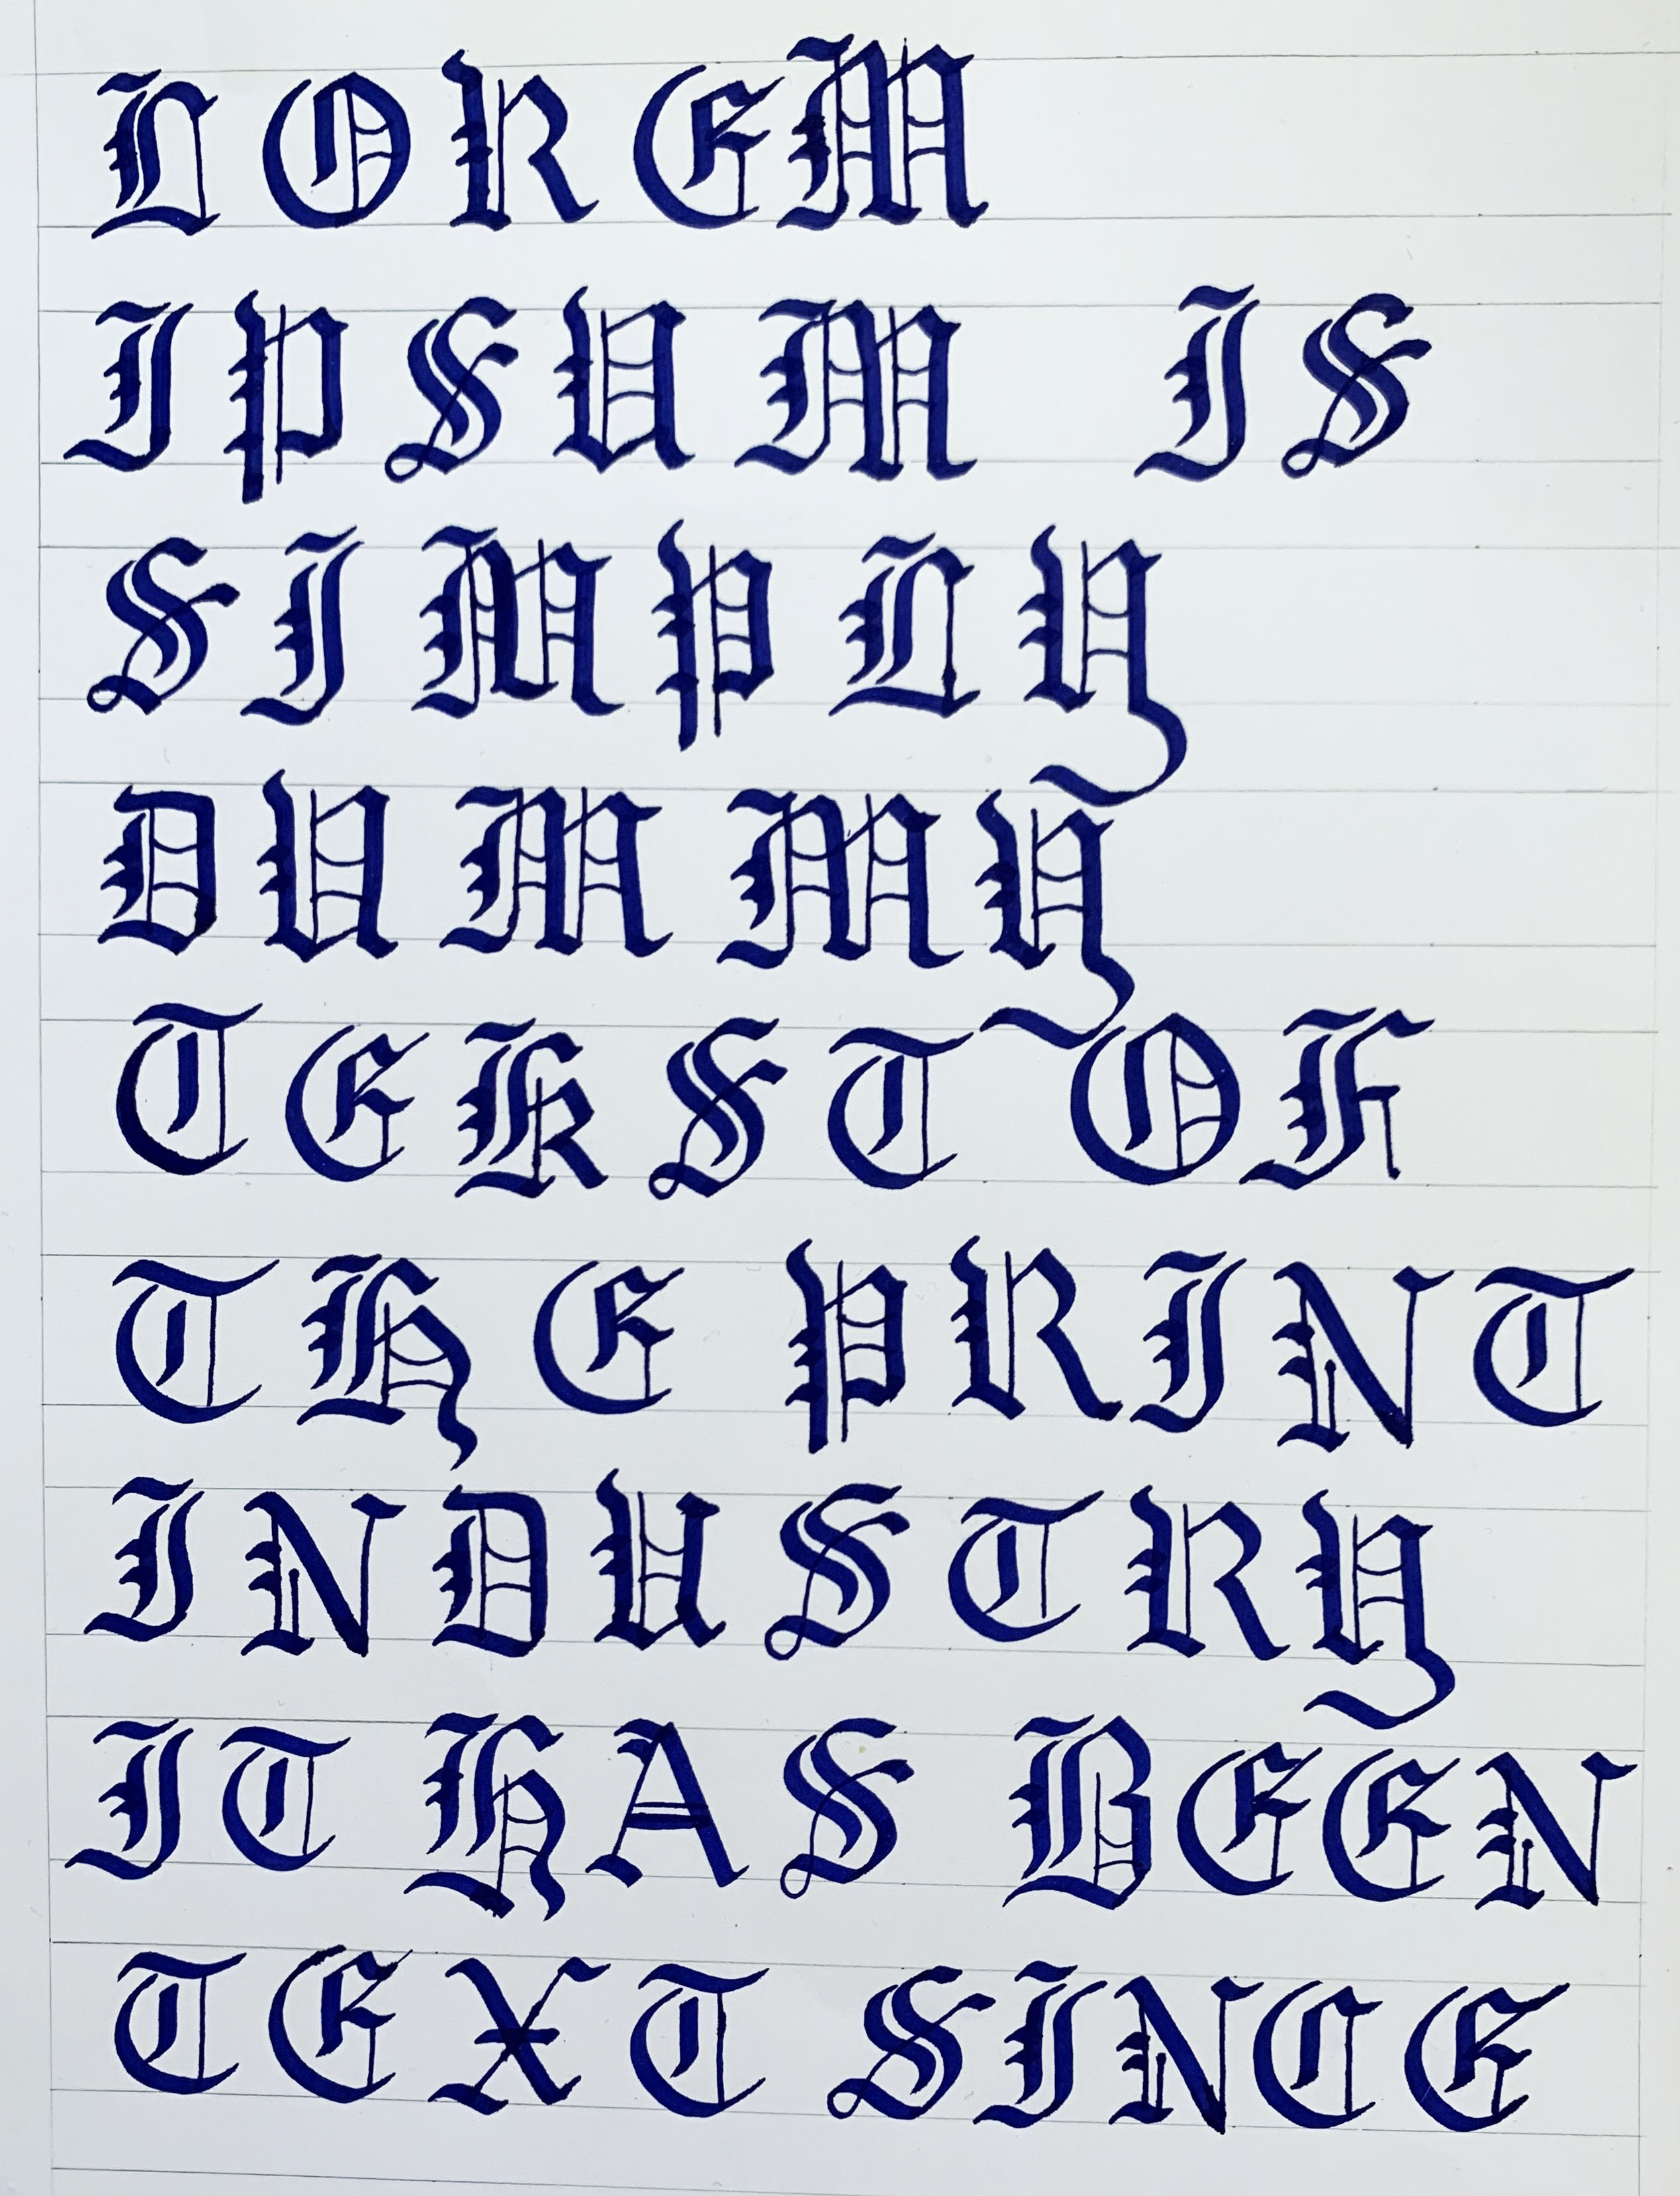 LOREM
IPSUM IS
SIMPLY
DUMMY
TEKST OF
THE PRINT
INDUSTRY
IT HAS BEEN
TEXT SINCE